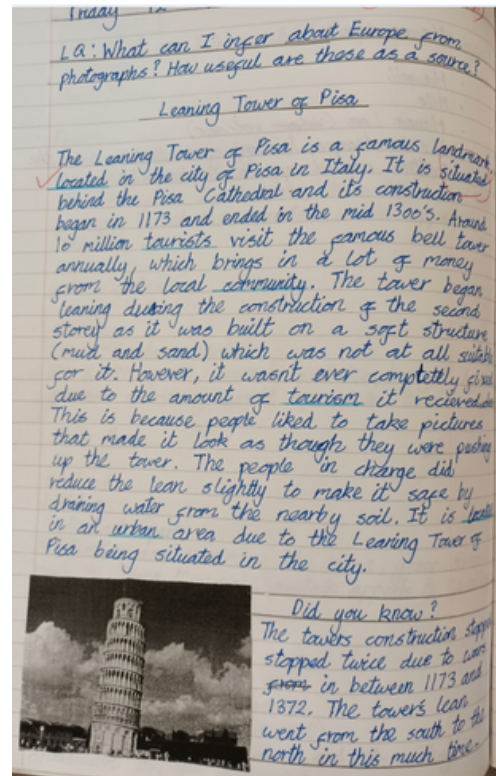 Friday 12
LQ: What can I infer about Europe from
photographs? How useful are these as a source?
Leaning Tower of Pisa
The Leaning Tower of Pisa is a famous landmark
located in the city of Pisa in Italy. It is situated
behind the Pisa Cathedral and its construction
began in 1173 and ended in the mid 1300's. Around
10 million tourists visit the famous bell tower
annually, which brings in a lot of money
from the local community. The tower began
leaning during the construction of the second
storey as it was built on a soft structure
(mud and sand) which was not at all suitable
for it. However, it wasn't ever completely fixed
due to the amount of tourism it recieved
This is because people liked to take pictures
that made it look as though they were pushing
up the tower. The people in charge did
reduce the lean slightly to make it safe by
draining water from the nearby soil. It is
in an urban area due to the Leaning Tower of
Pisa being situated in the city.
Did you know?
The towers construction
stopped twice due to wars
from in between 1173 and
1372. The tower's lean
went from the south to the
north in this much time.